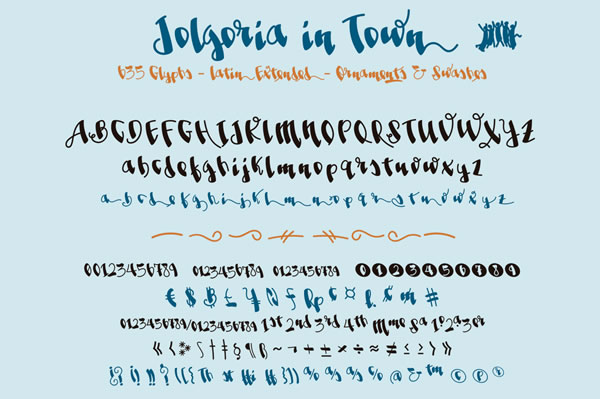 Jolgoria in Town
635 Glyphs - Latin Extended - Ornaments & Swashes
ABCDEFGHIJKLMNOPQRSTUVWXYZ
abcdefghijklmnopqrstuvwxyz
abcdefghijklmnopqrstuvwxyz
00123456789 0123456789 0123456789 0123456789
€ $ ₿ £ ¥ ƒ ¢ ¤ m #
0123456789/0123456789 1st 2nd 3rd 4th
« ‹ § † ‡ ¶ ~ ¬ + ± × ÷ ≈ ≠ ≤ ≥ › »
( { % @ & ™ © ®